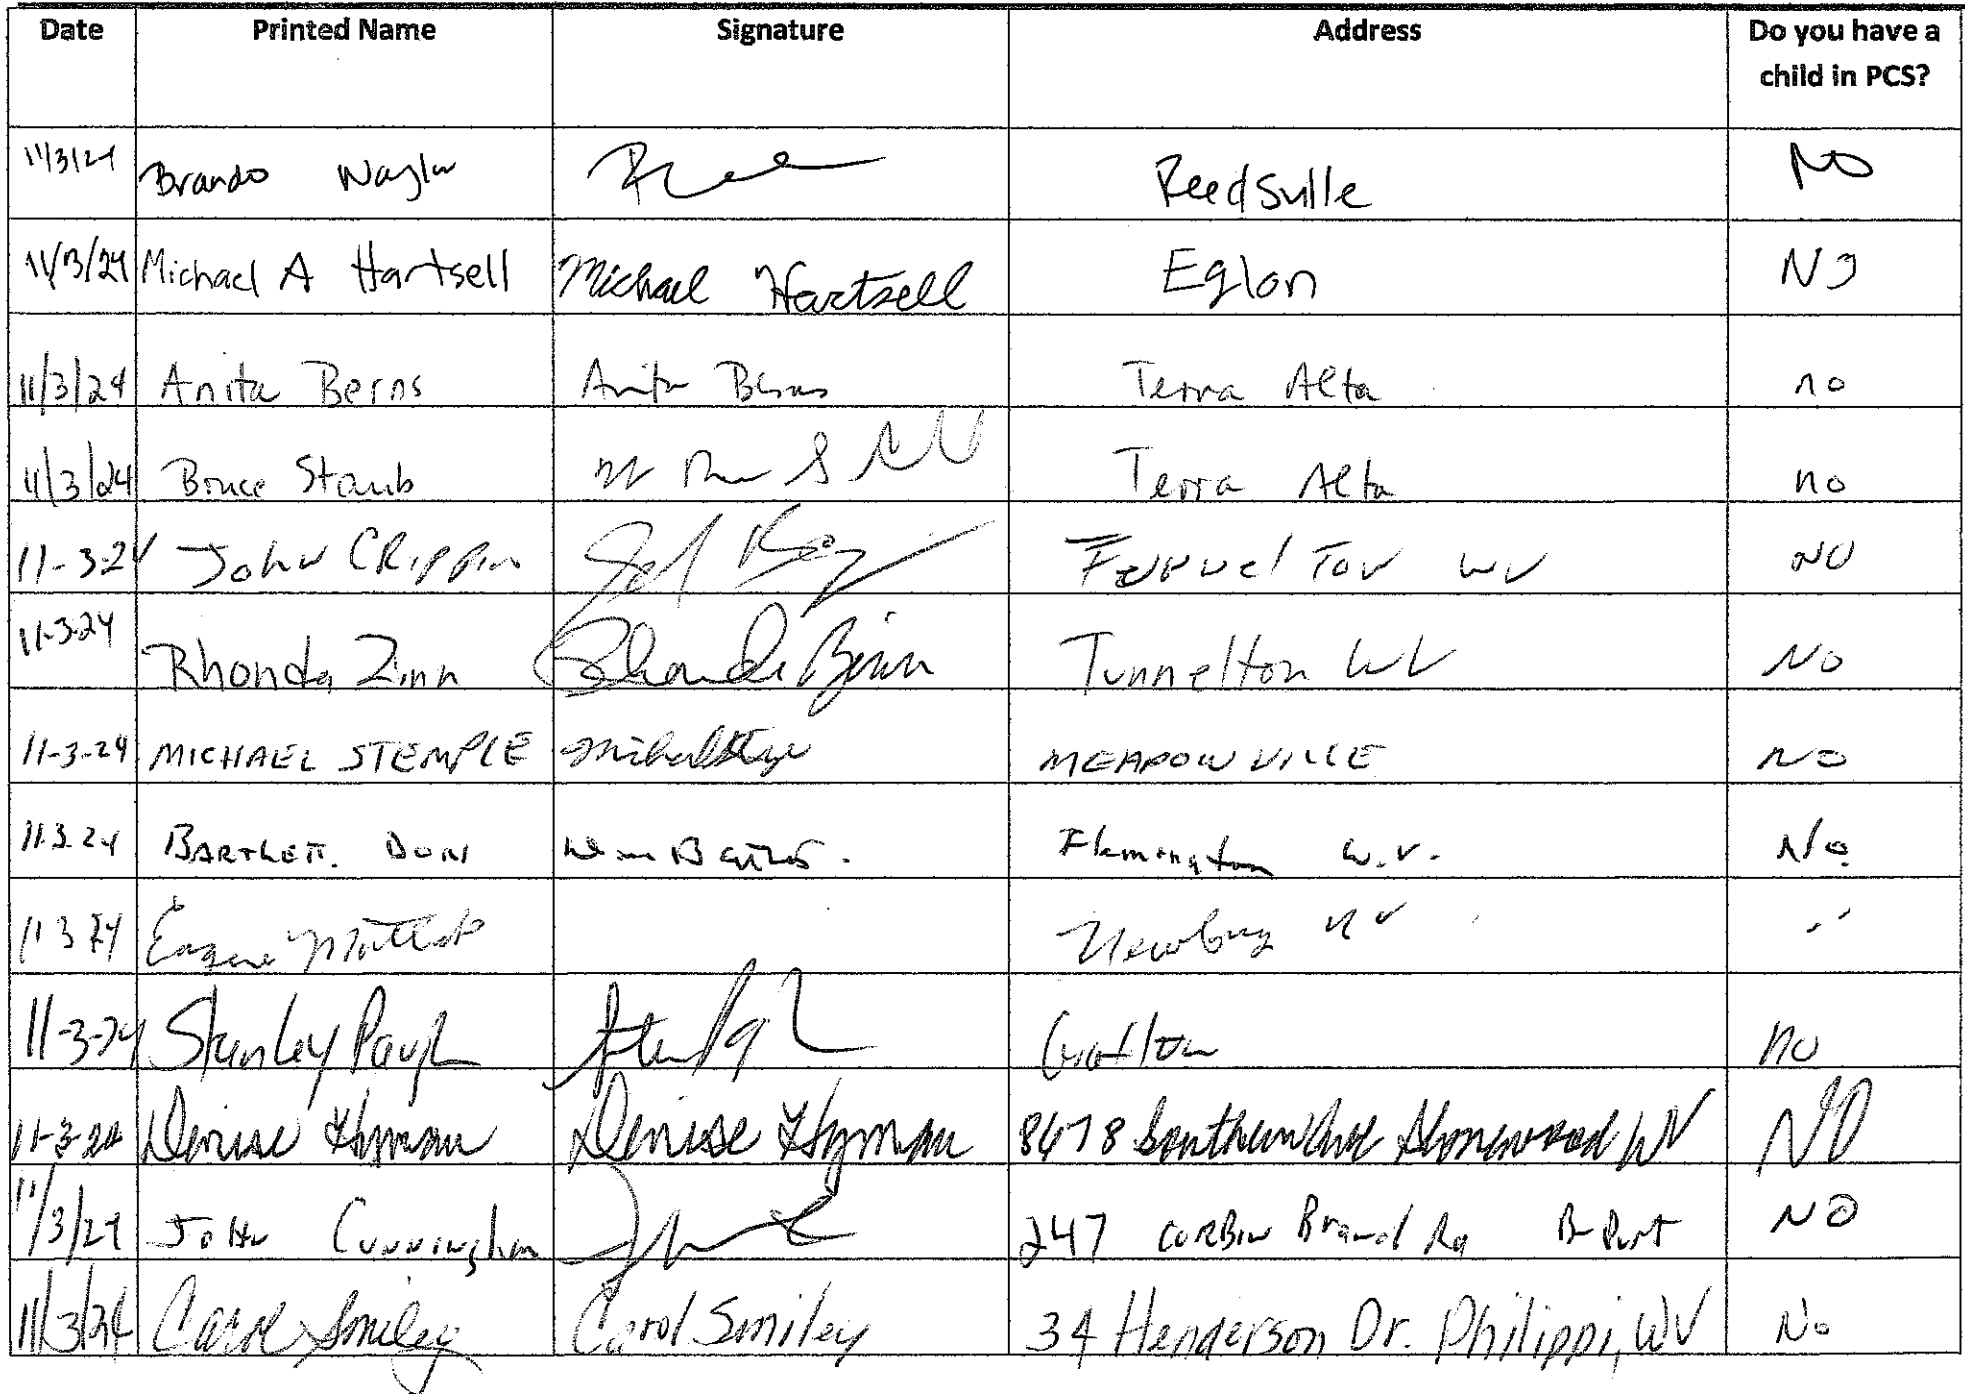 Date Printed Name Signature Address Do you have a
child in PCS?
11/3/24 Brando Naylor Reedsville NO
11/3/24 Michael A Hartsell Michael Hartsell Eglon No
11/3/24 Anita Berns Anita Berns Terra Alta no
11/3/24 Bruce Staub Terra Alta no
11-3-24 John CRippin WV NO
11-3-24 Rhonda Zinn Rhonda Zinn Tunnelton WV No
11-3-24 MICHAEL STEMPLE MEADOWVILLE NO
11-3-24 BARTLETT. DON Flemington W.V. No.
11 3 24 Eugene Newburg WV
11-3-24 Stanley Paugh Grafton no
11-3-24 Denise Hyman Denise Hyman 8478 WV NO
11/3/24 John Cunningham 247 CORBIN Branch Rd NO
11/3/24 Carol Smiley Carol Smiley 34 Henderson Dr. Philippi, WV No